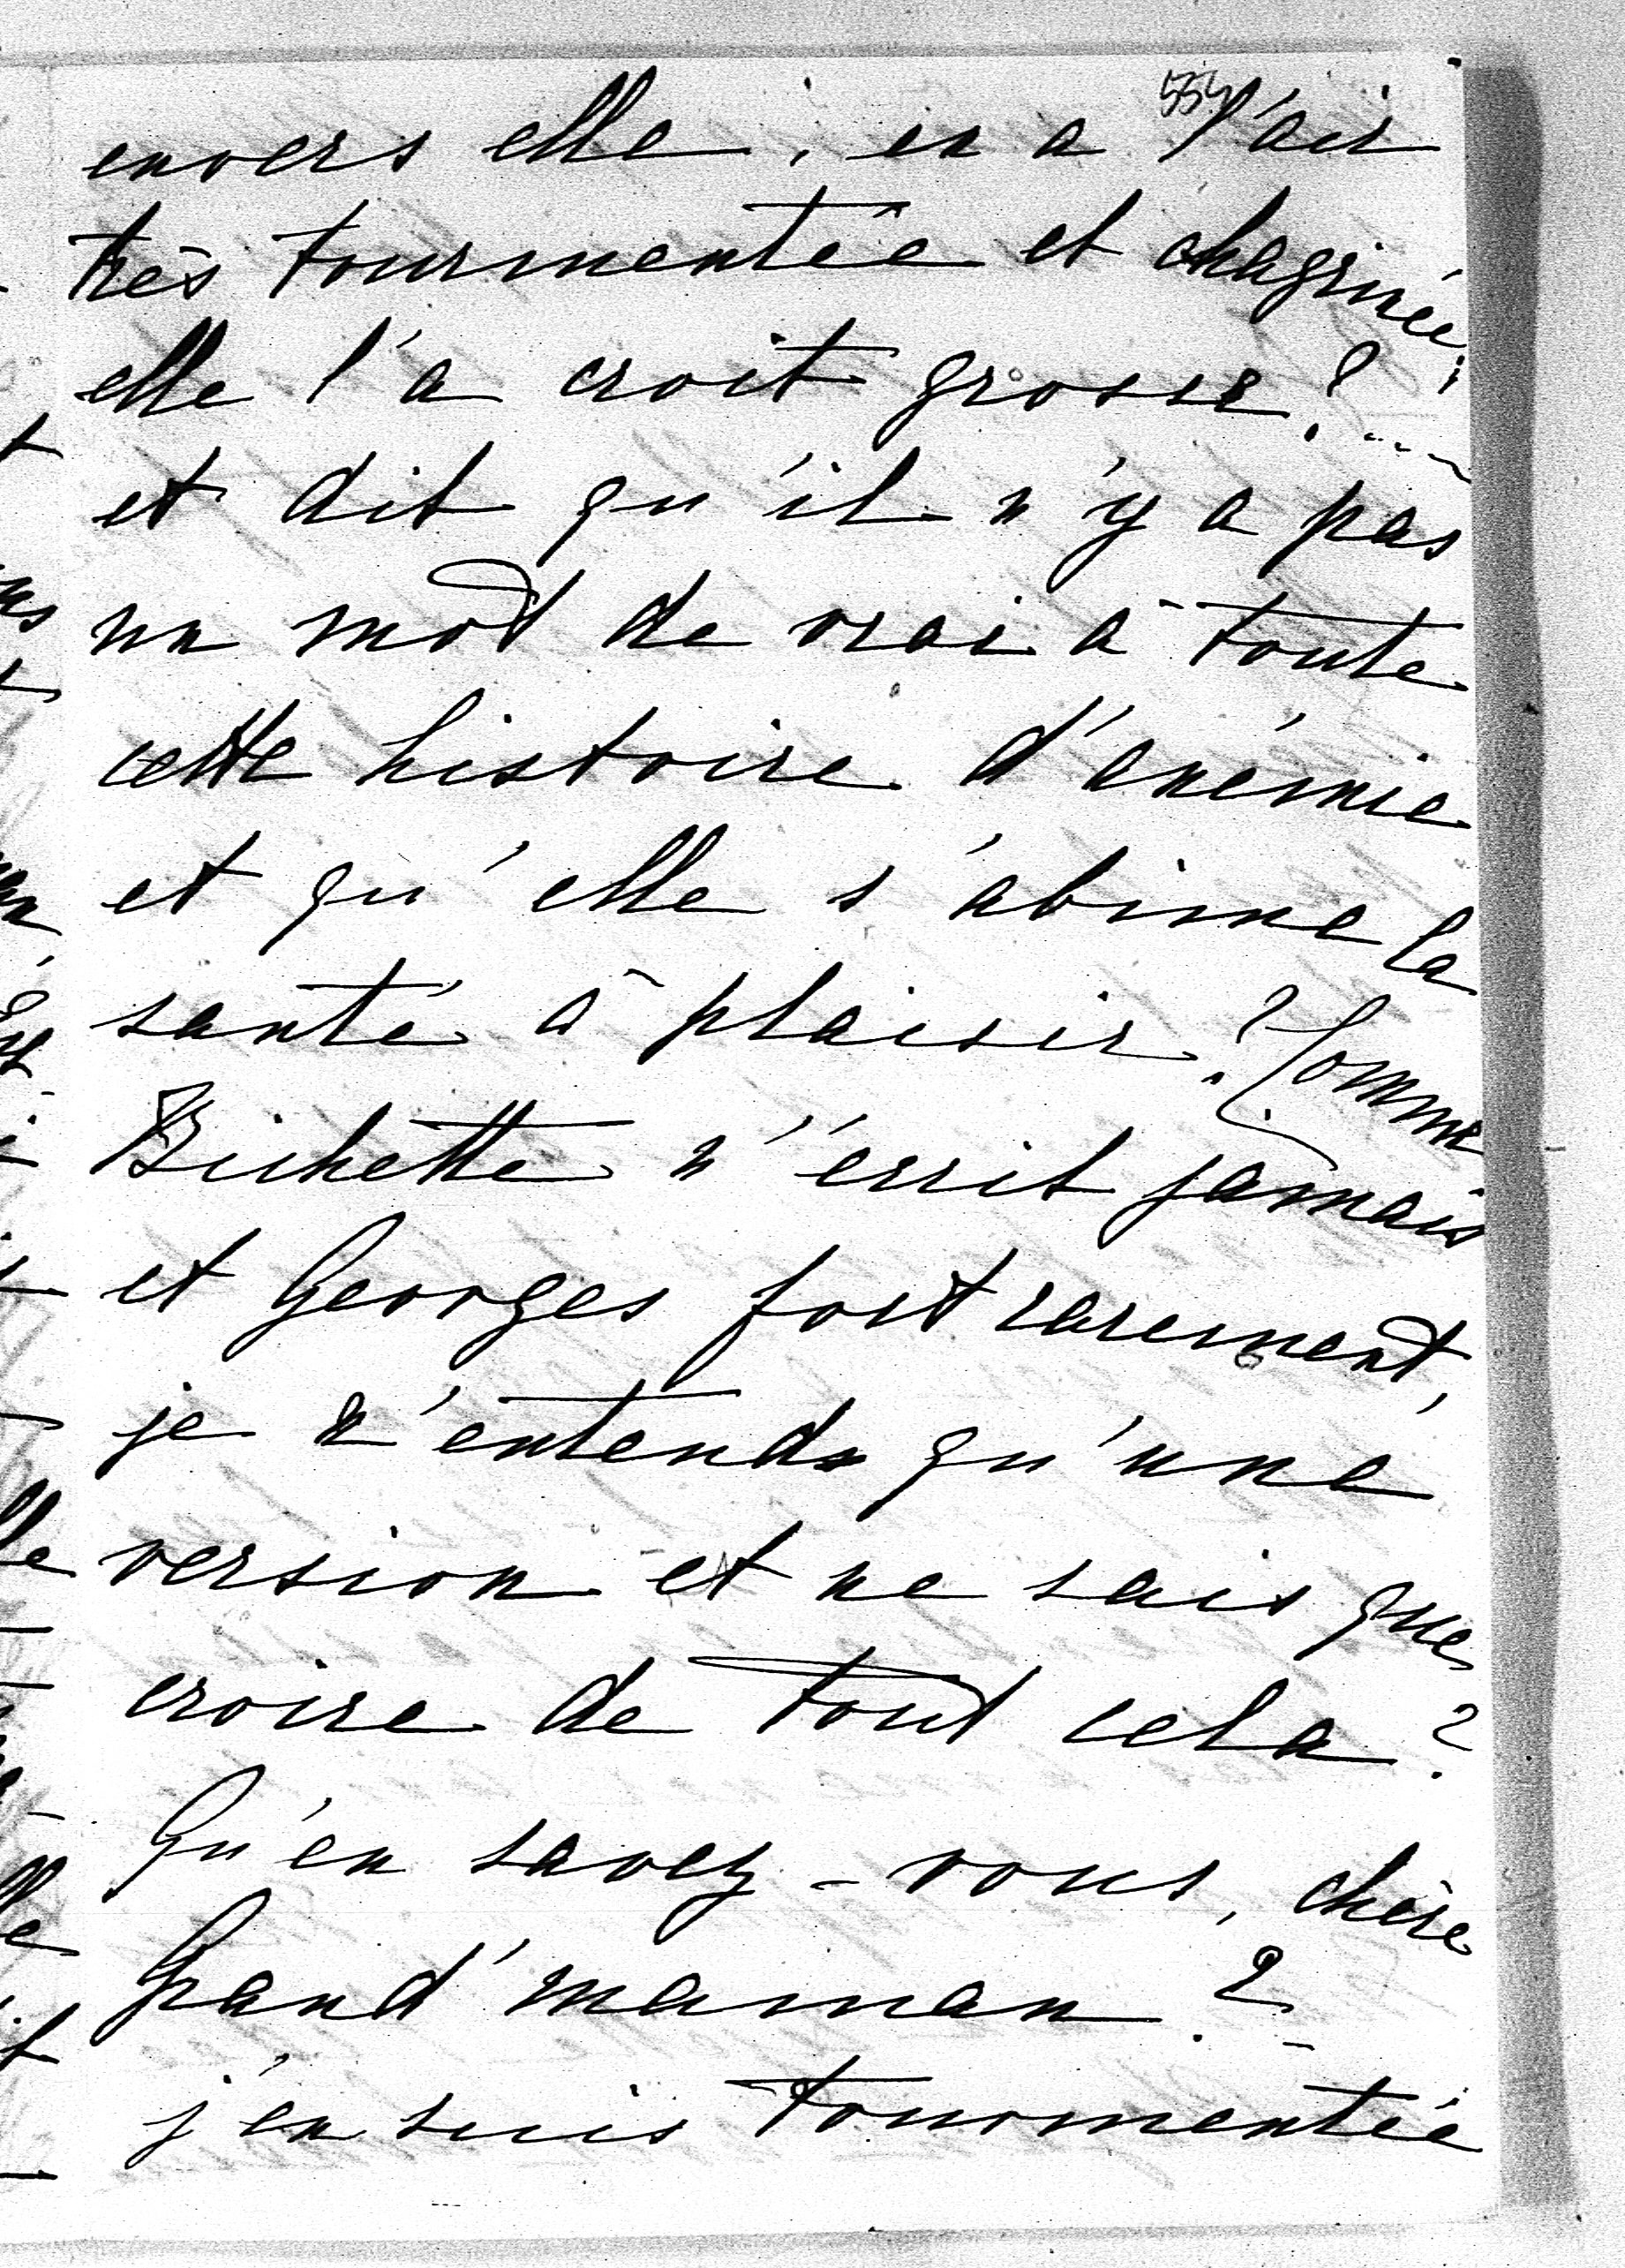 554
envers elle, en a l'air
très tourmentée et chagrinée;
elle l'a croit grosse?...
et dit qu'il n'y a pas
un mot de vrai à toute
cette histoire d'anémie
et qu'elle s'abime la
santé à plaisir? Comme
Bichette n'écrit jamais
et Georges fort rarement,
je n'entends qu'une
version et ne sais que
croire de tout cela?
Qu'en savez-vous, chère
Grand'maman?
j'en suis tourmentée